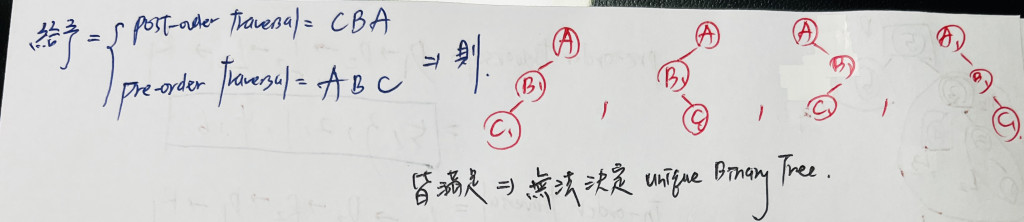 給予 = { post-order traversal = CBA
pre-order traversal = A B C ⇒ 則.
A B C , A B C , A B C , A B C
皆滿足 ⇒ 無法決定 unique Binary Tree.